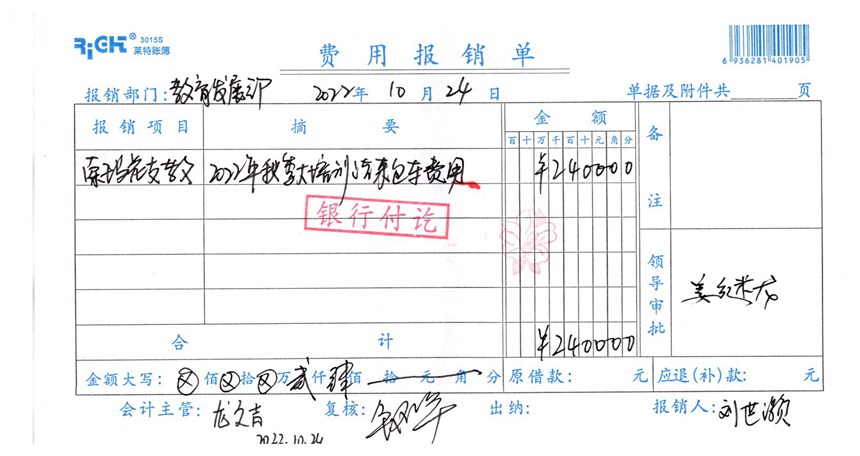 RiGHT® 3015S
莱特账簿
费用报销单
6 936281 401905
报销部门:教育发展部 2022年 10月24日 单据及附件共 页
报销项目 摘要 金额 备注
百十万千百十元角分
支教 2022年秋季大培训 包车费用 ¥240000
银行付讫
领导审批
合计 ¥240000
金额大写: ⊗佰⊗拾⊗万贰仟肆佰 拾 元 角 分 原借款: 元 应退(补)款: 元
会计主管: 龙文吉 复核: 出纳: 报销人: 刘世灏
2022.10.24